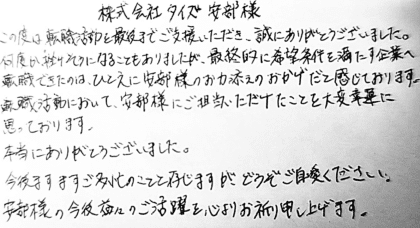 株式会社タイズ 安部様
この度は転職活動を最後までご支援いただき、誠にありがとうございました。
何度か挫けそうになることもありましたが、最終的に希望条件を満たす企業へ
転職できたのは、ひとえに安部様のお力添えのおかげだと感じております。
転職活動において、安部様にご担当いただけたことを大変幸運に
思っております。
本当にありがとうございました。
今後ますますご多忙のことと存じますが、どうぞご自愛ください。
安部様の今後益々のご活躍を心よりお祈り申し上げます。